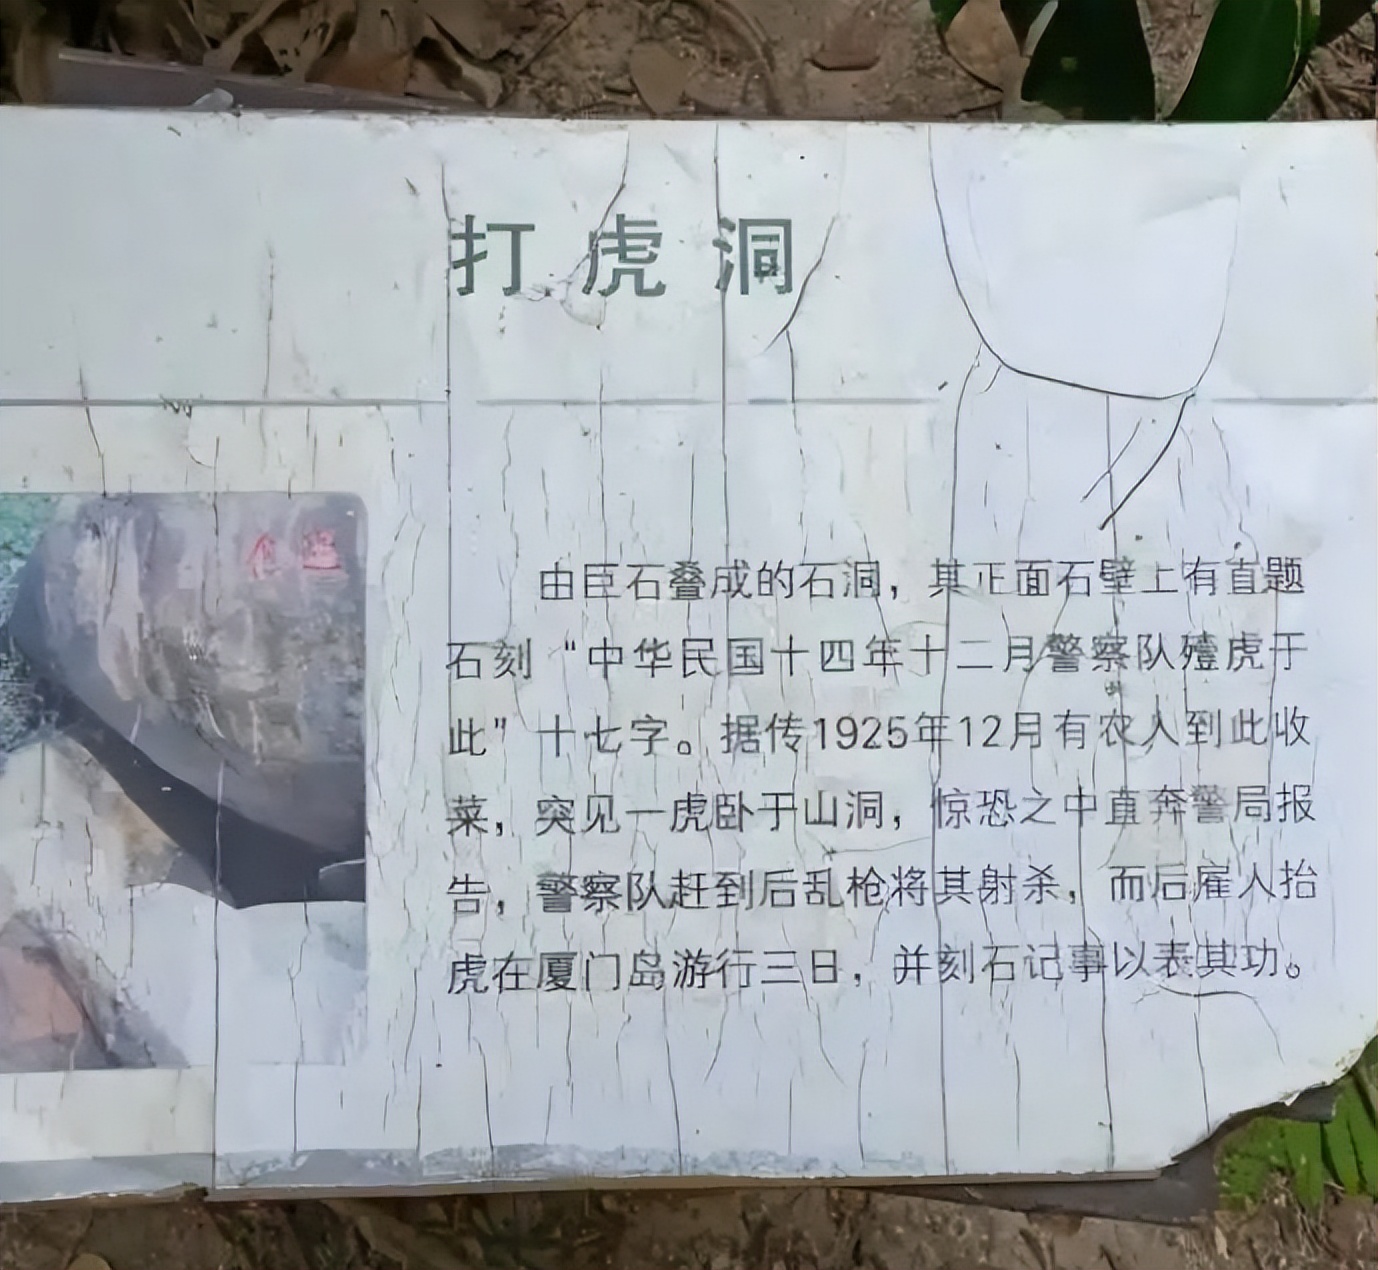 打虎洞
由巨石叠成的石洞，其正面石壁上有直题
石刻“中华民国十四年十二月警察队殪虎于
此”十七字。据传1925年12月有农人到此收
菜，突见一虎卧于山洞，惊恐之中直奔警局报
告，警察队赶到后乱枪将其射杀，而后雇人抬
虎在厦门岛游行三日，并刻石记事以表其功。